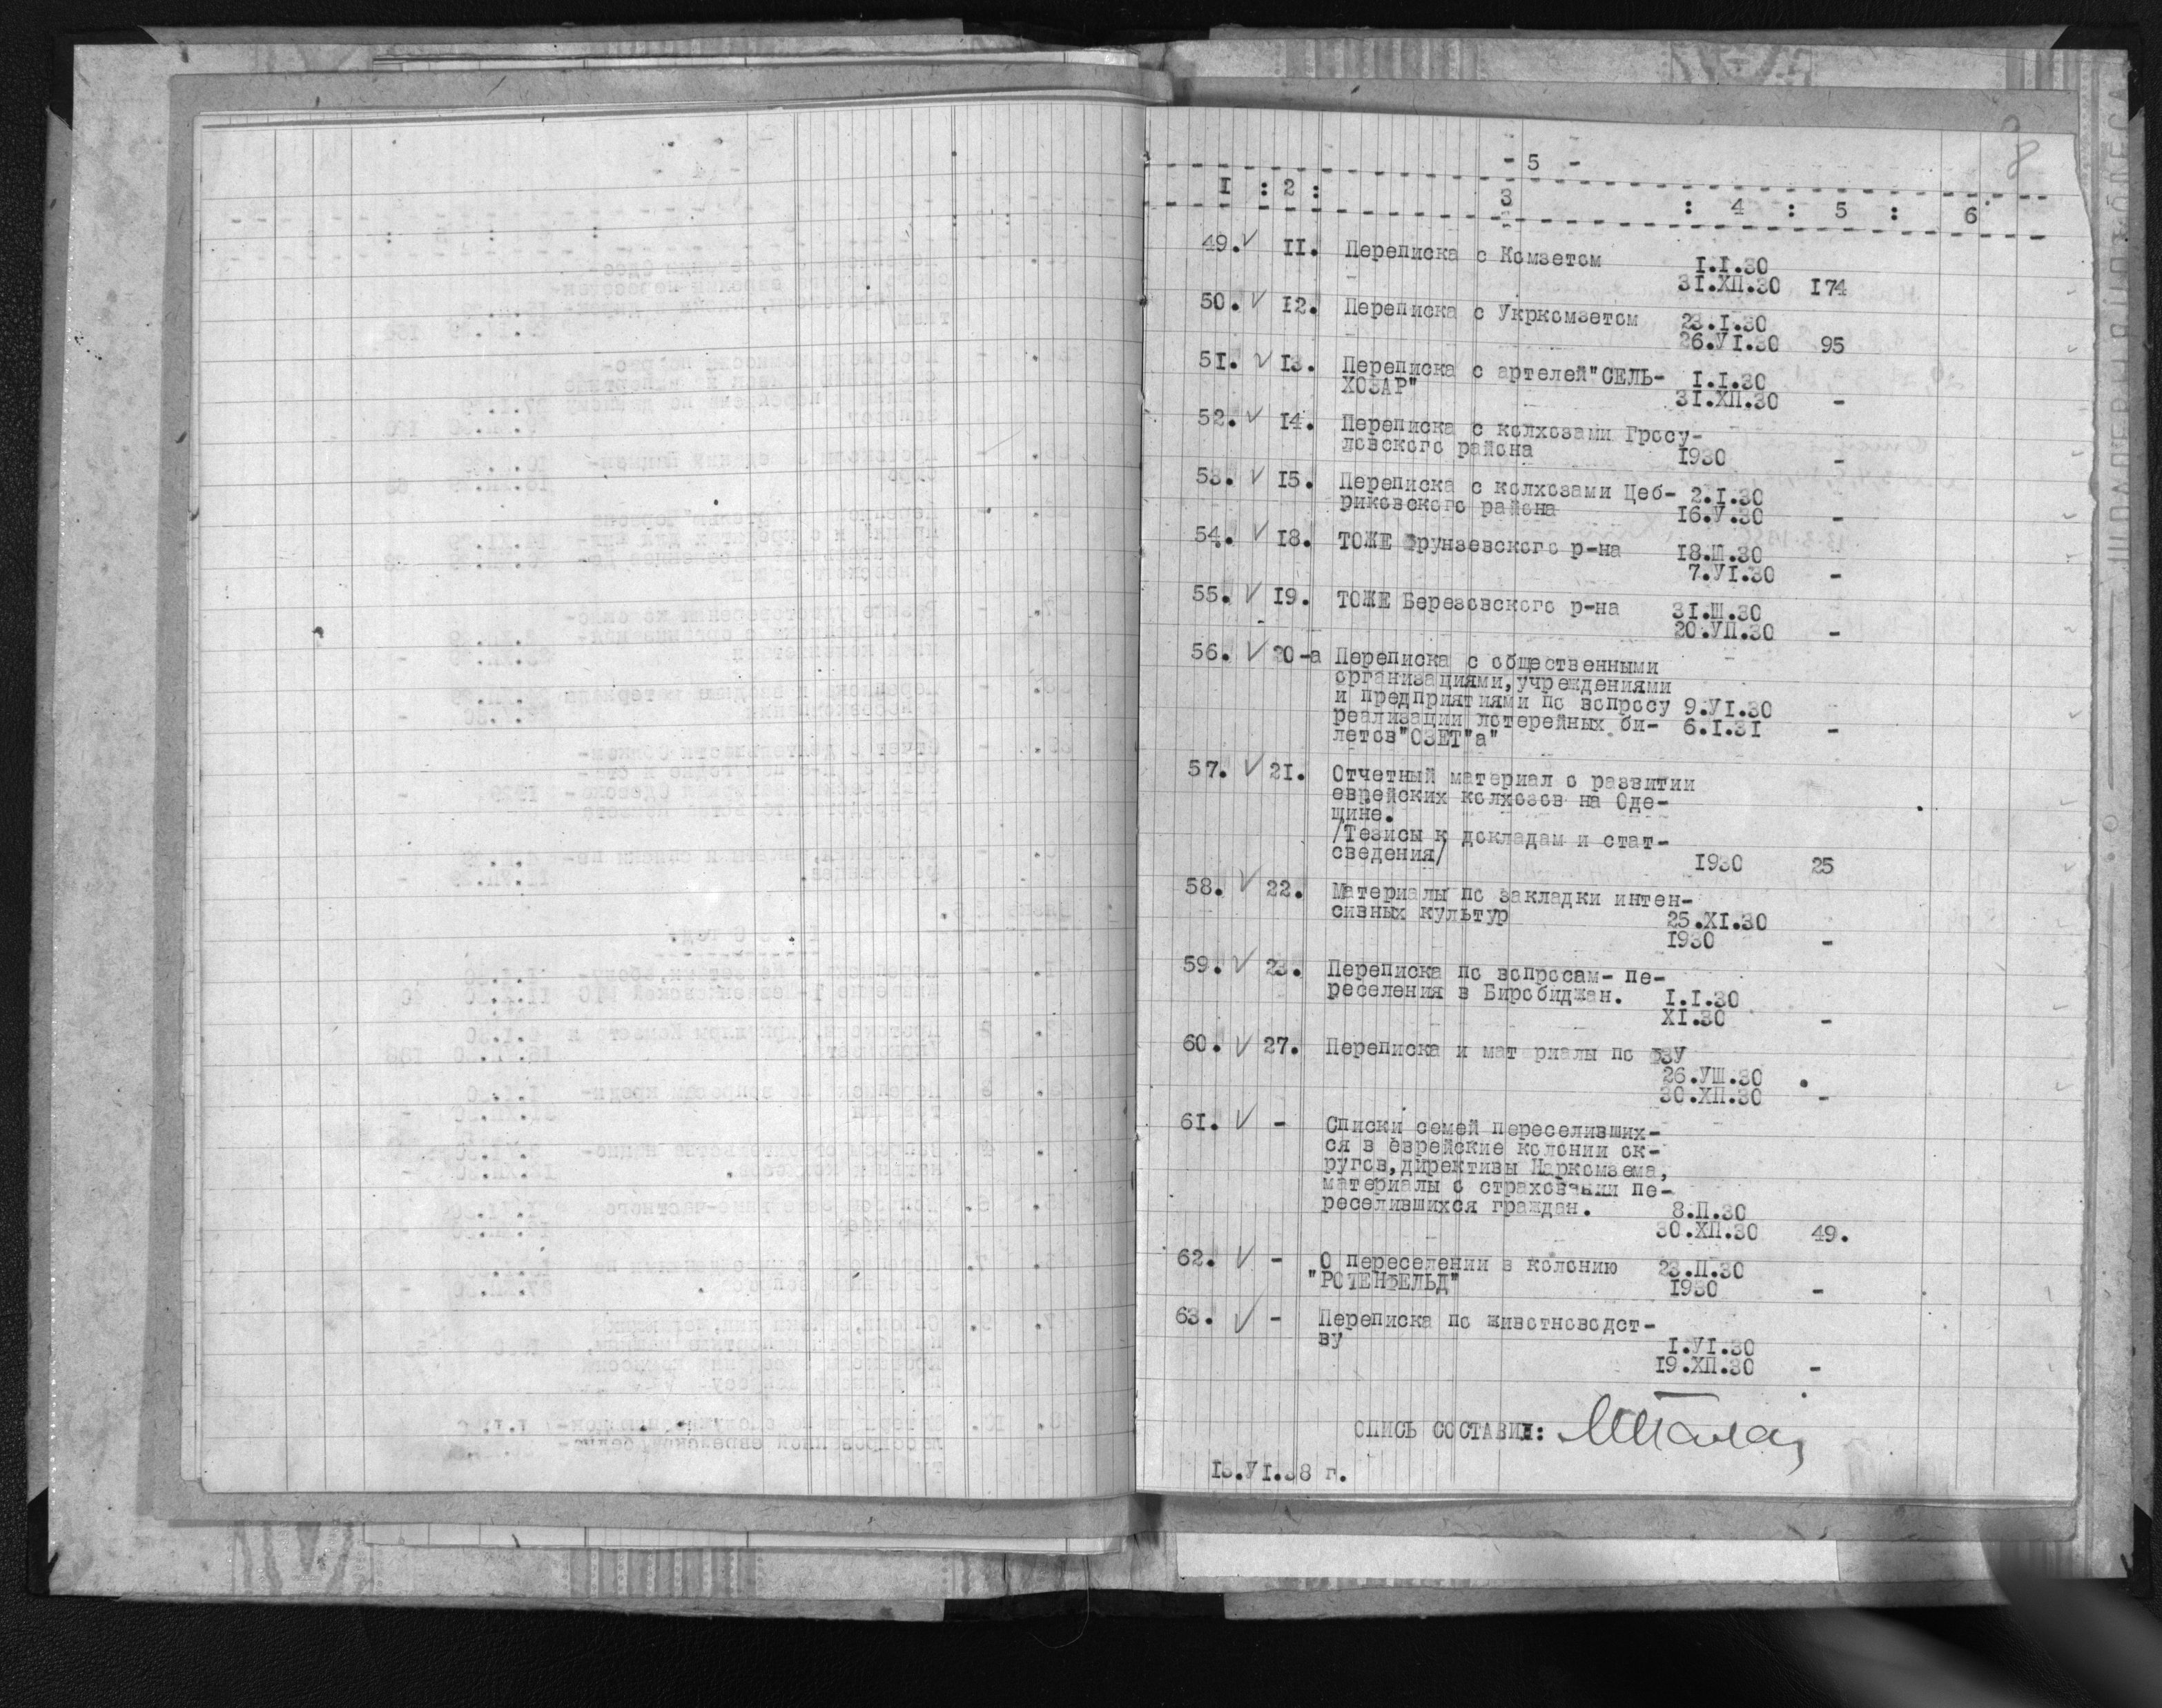 8
- 5 -
I : 2 : 3 : 4 : 5 : 6
49. V II. Переписка с Комзетом I.I.30
31.ХП.30 174
50. V 12. Переписка с Укркомзетом 23.I.30
26.У1.30 95
51. V 13. Переписка с артелей "СЕЛЬ- I.I.30
ХОЗАР" 31.ХП.30 -
52. V 14. Переписка с колхозами Гросу-
ловского района 1930 -
53. V 15. Переписка с колхозами Цеб- 2.I.30
риковского района 16.У.30 -
54. V 18. ТОЖЕ Фрунзевского р-на 18.Ш.30
7.У1.30 -
55. V 19. ТОЖЕ Березовского р-на 31.Ш.30
20.УП.30 -
56. V 20-а Переписка с общественными
организациями, учреждениями
и предприятиями по вопросу 9.У1.30
реализации лотерейных би- 6.I.31 -
летов "ОЗЕТ"а"
57. V 21. Отчетный материал о развитии
еврейских колхозов на Оде-
щине.
/Тезисы к докладам и стат-
сведения/ 1930 25
58. V 22. Материалы по закладки интен-
сивных культур 25.XI.30
1930 -
59. V 23. Переписка по вопросам- пе-
реселения в Биробиджан. I.I.30
XI.30 -
60. V 27. Переписка и мат риалы по ФЗУ
26.УШ.30
30.ХП.30 -
61. V - Списки семей переселивших-
ся в еврейские колонии ок-
ругов, директивы Наркомзема,
материалы о страховании пе-
реселившихся граждан. 8.П.30
30.ХП.30 49.
62. V - О переселении в колонию 23.П.30
"РОТЕНФЕЛЬД" 1930 -
63. V - Переписка по животноводст-
ву I.У1.30
19.ХП.30 -
ОПИСЬ СОСТАВИЛ:
13.У1.38 г.